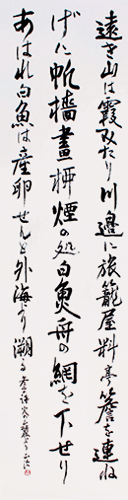 遠き山は霞みたり川邊に旅籠屋料亭簷を連ね
げに帆檣畫楫煙の処白魚舟の網を下せり
あはれ白魚は産卵せんと外海より溯る